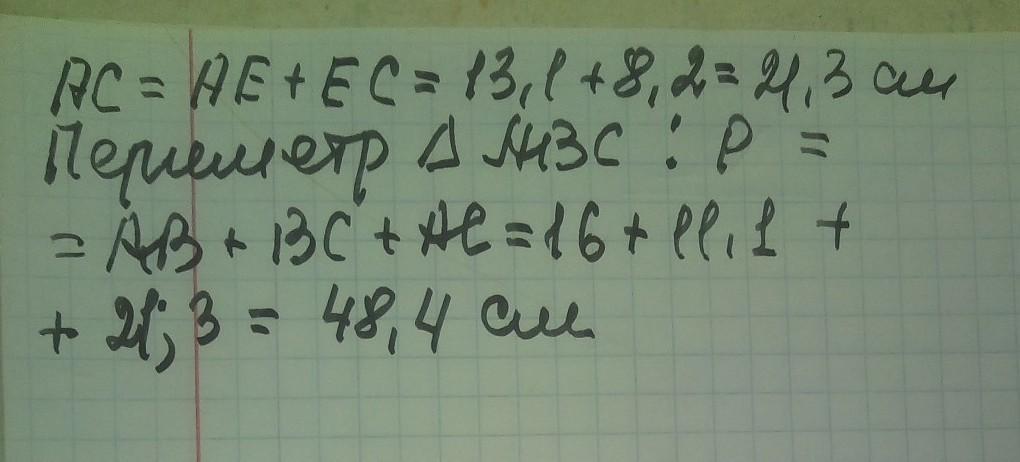 AC = AE + EC = 13,1 + 8,2 = 21,3 см
Периметр Δ ABC : P =
= AB + BC + AC = 16 + 11,1 +
+ 21,3 = 48,4 см